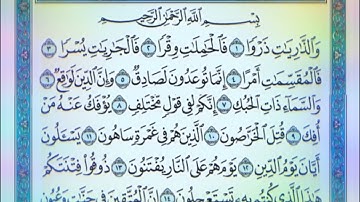 بِسْمِ اللَّهِ الرَّحْمَٰنِ الرَّحِيمِ
وَالذَّارِيَاتِ ذَرْوًا ١ فَالْحَامِلَاتِ وِقْرًا ٢ فَالْجَارِيَاتِ يُسْرًا ٣
فَالْمُقَسِّمَاتِ أَمْرًا ٤ إِنَّمَا تُوعَدُونَ لَصَادِقٌ ٥ وَإِنَّ الدِّينَ لَوَاقِعٌ ٦
وَالسَّمَاءِ ذَاتِ الْحُبُكِ ٧ إِنَّكُمْ لَفِي قَوْلٍ مُخْتَلِفٍ ٨ يُؤْفَكُ عَنْهُ مَنْ
أُفِكَ ٩ قُتِلَ الْخَرَّاصُونَ ١٠ الَّذِينَ هُمْ فِي غَمْرَةٍ سَاهُونَ ١١ يَسْأَلُونَ
أَيَّانَ يَوْمُ الدِّينِ ١٢ يَوْمَ هُمْ عَلَى النَّارِ يُفْتَنُونَ ١٣ ذُوقُوا فِتْنَتَكُمْ
هَٰذَا الَّذِي كُنْتُمْ بِهِ تَسْتَعْجِلُونَ ١٤ إِنَّ الْمُتَّقِينَ فِي جَنَّاتٍ وَعُيُونٍ